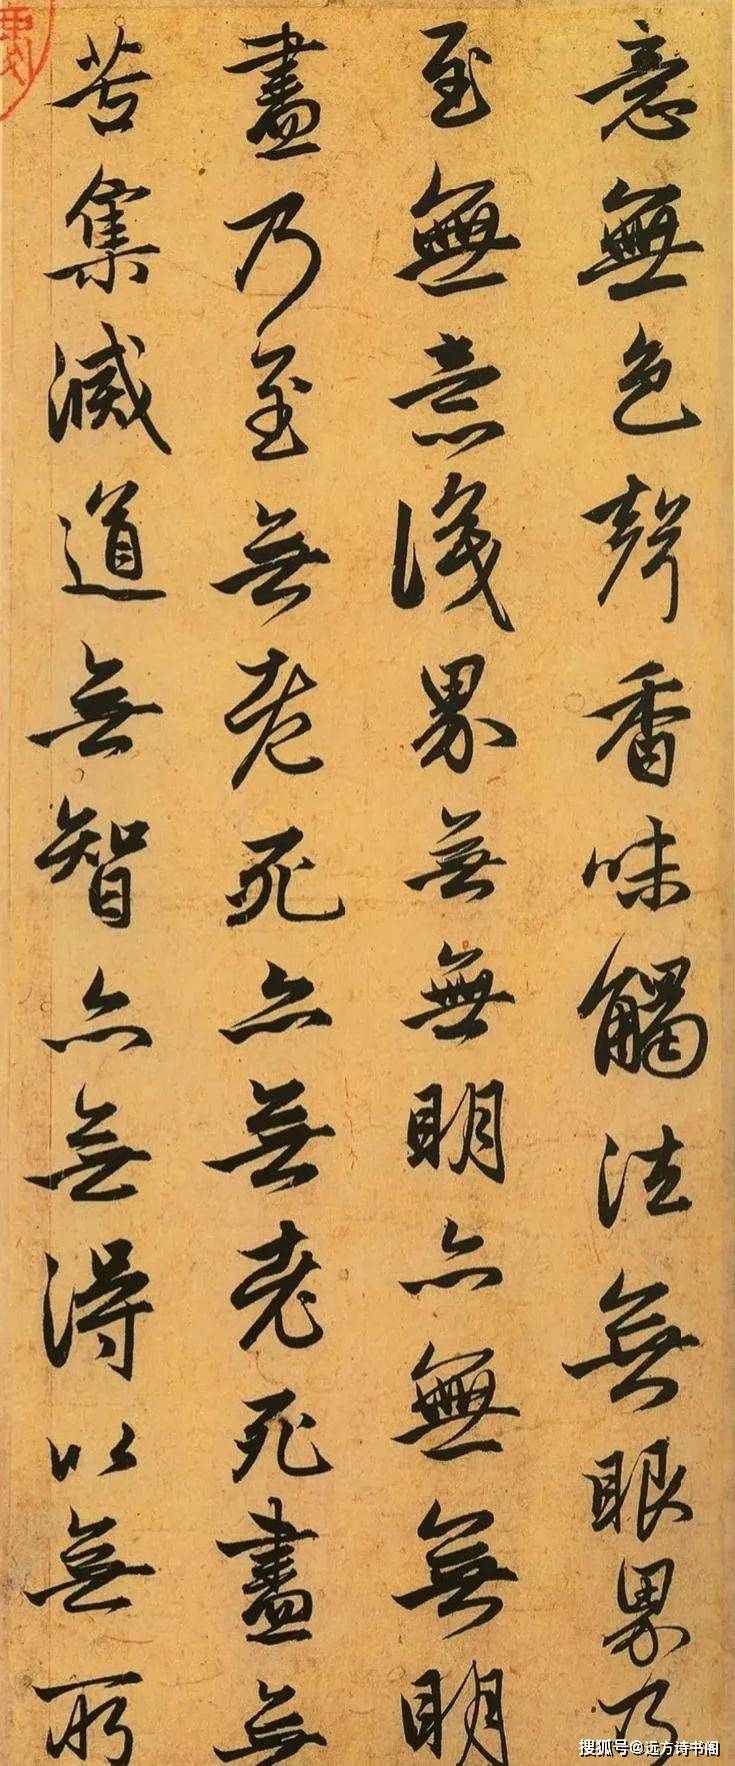 意無色聲香味觸法無眼界乃
至無意識界無無明亦無無明
盡乃至無老死亦無老死盡無
苦集滅道無智亦無得以無所
搜狐号@远方诗书阁